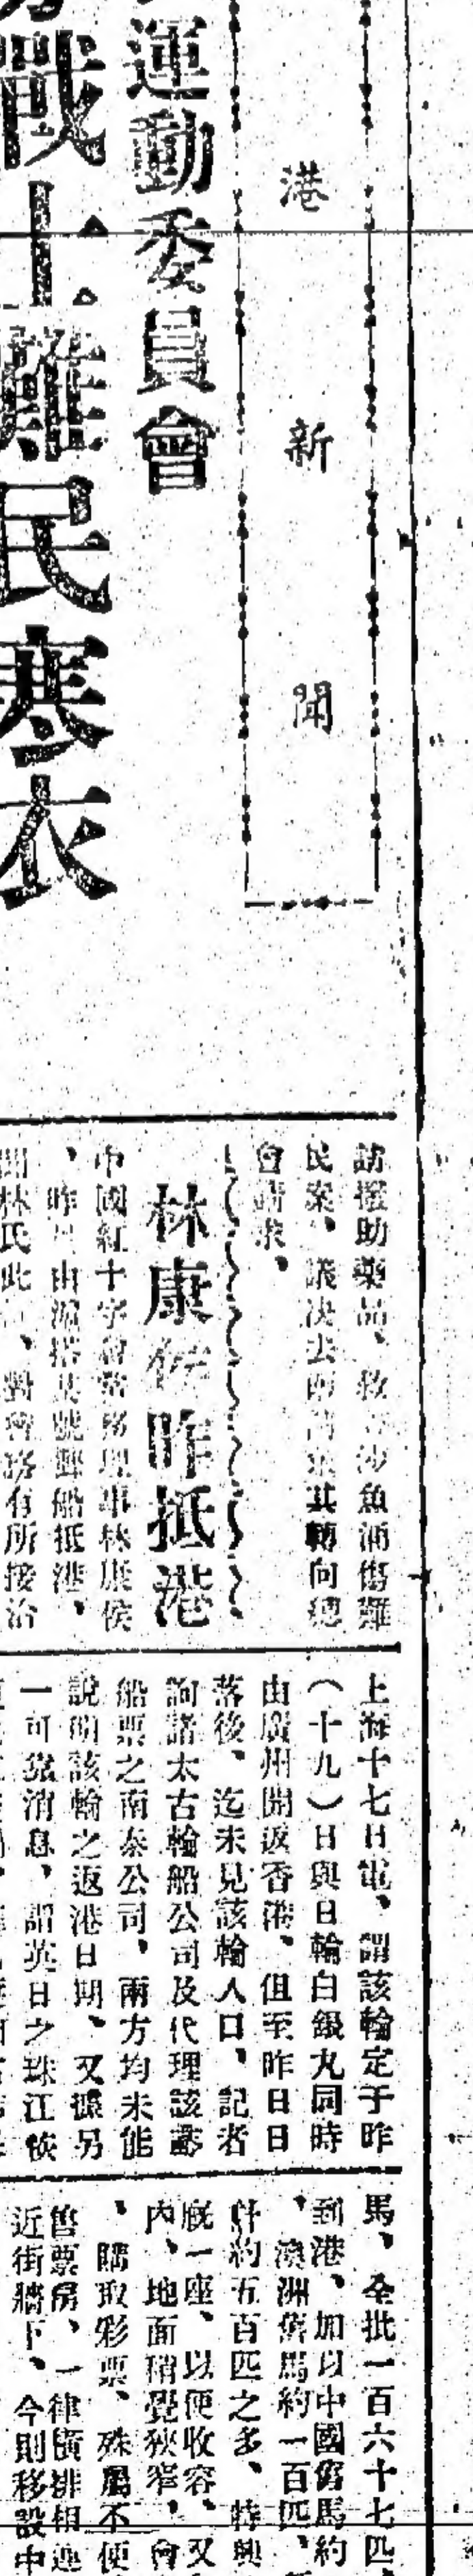 港新聞
運動委員會
戰士難民寒衣
訪援助藥品、救 沙魚涌傷難
民案、議決去函 其轉向總
會請求、
林康侯昨抵港
中國紅十字會常務理事林康侯
、昨 由滬搭 號郵船抵港、
聞林氏此 、對會務有所接洽
上海十七日電、謂該輪定于昨
（十九）日與日輪白銀丸同時
由廣州開返香港、但至昨日日
落後、迄未見該輪入口、記者
詢諸太古輪船公司及代理該輪
船票之南泰公司、兩方均未能
說明該輪之返港日期、又據另
一可靠消息、謂英日之珠江
馬、全批一百六十七匹、
到港、加以中國舊馬約
、澳洲舊馬約一百匹、
計約五百匹之多、特興
廐一座、以便收容、又
內、地面稍覺狹窄、會
、購取彩票、殊屬不便
售票房、一律橫排相連
近街牆下、今則移設中